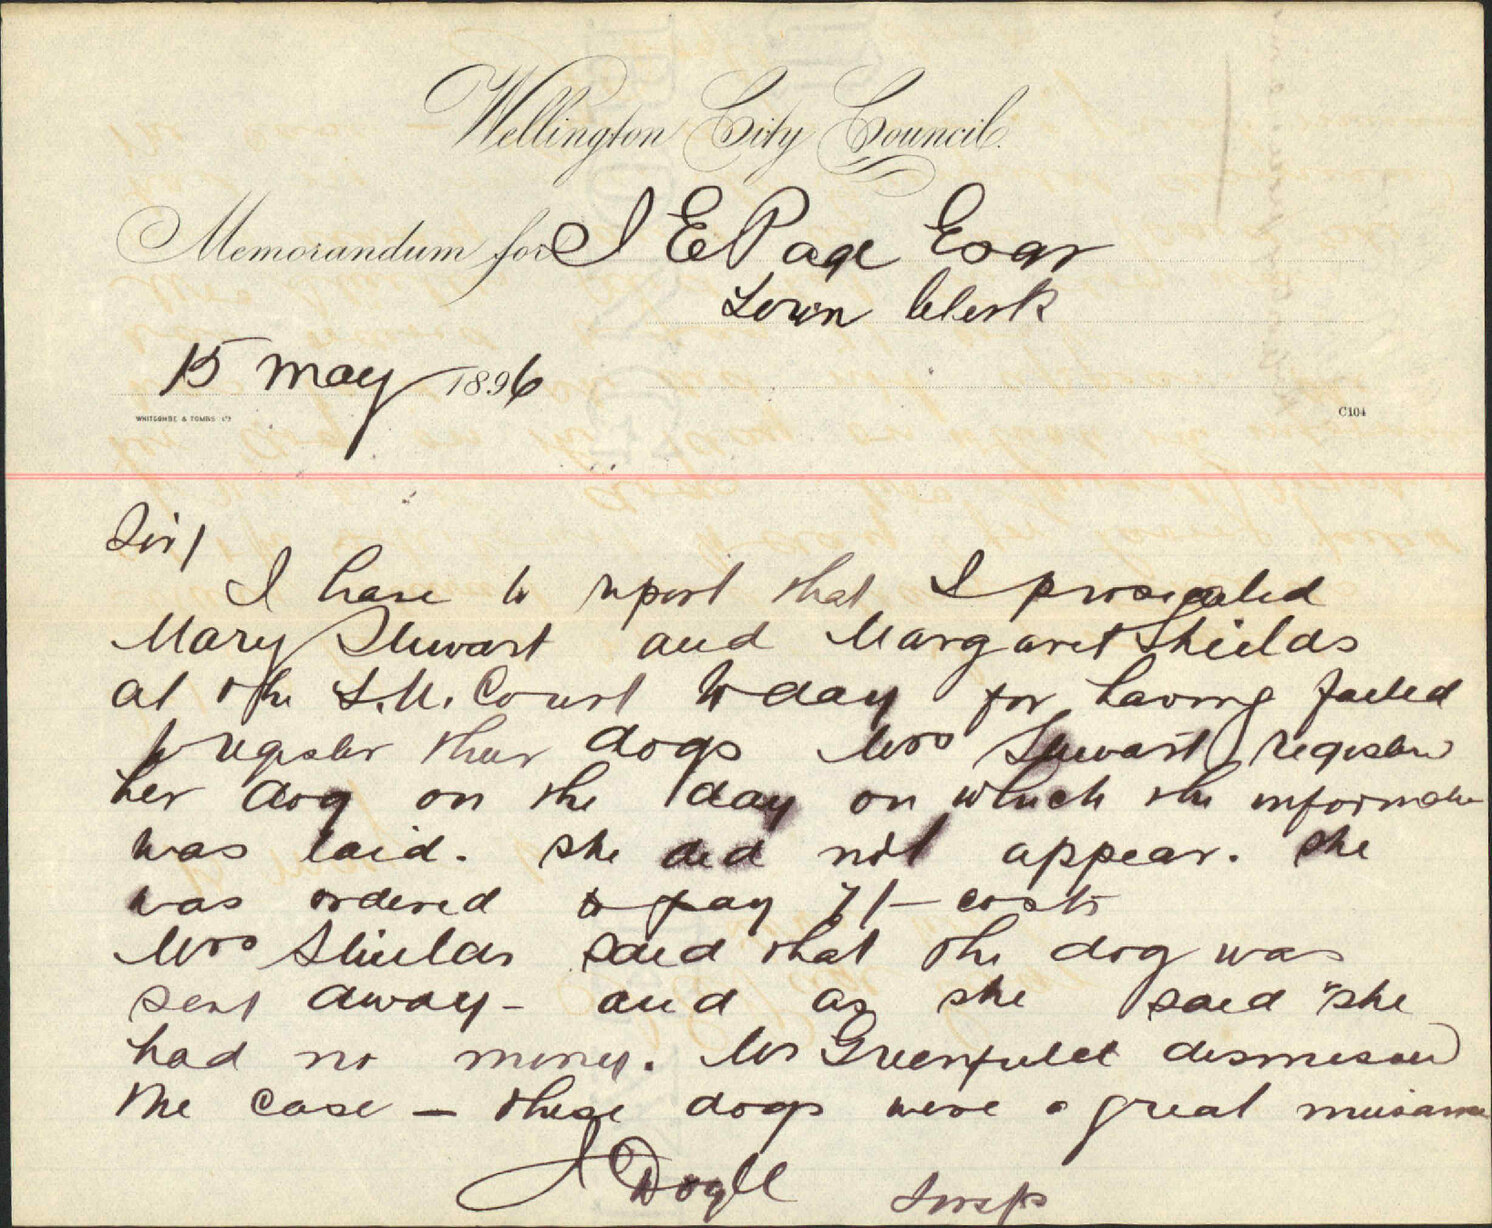 Wellington City Council.
Memorandum for J E Page Esqr
Town Clerk
15 May 1896
WHITCOMBE & TOMBS LTD
C104
Sir/
I have to report that I prosecuted
Mary Stewart and Margaret Shields
at the S.M. Court today for having failed
to register their dogs Mrs Stewart registered
her dog on the day on which the information
was laid. She did not appear. She
was ordered to pay 7/- costs
Mrs Shields said that the dog was
sent away - and as she said "she
had no money. Mr Greenfield dismissed
the case - these dogs were a great nuisance
J Doyle Insp